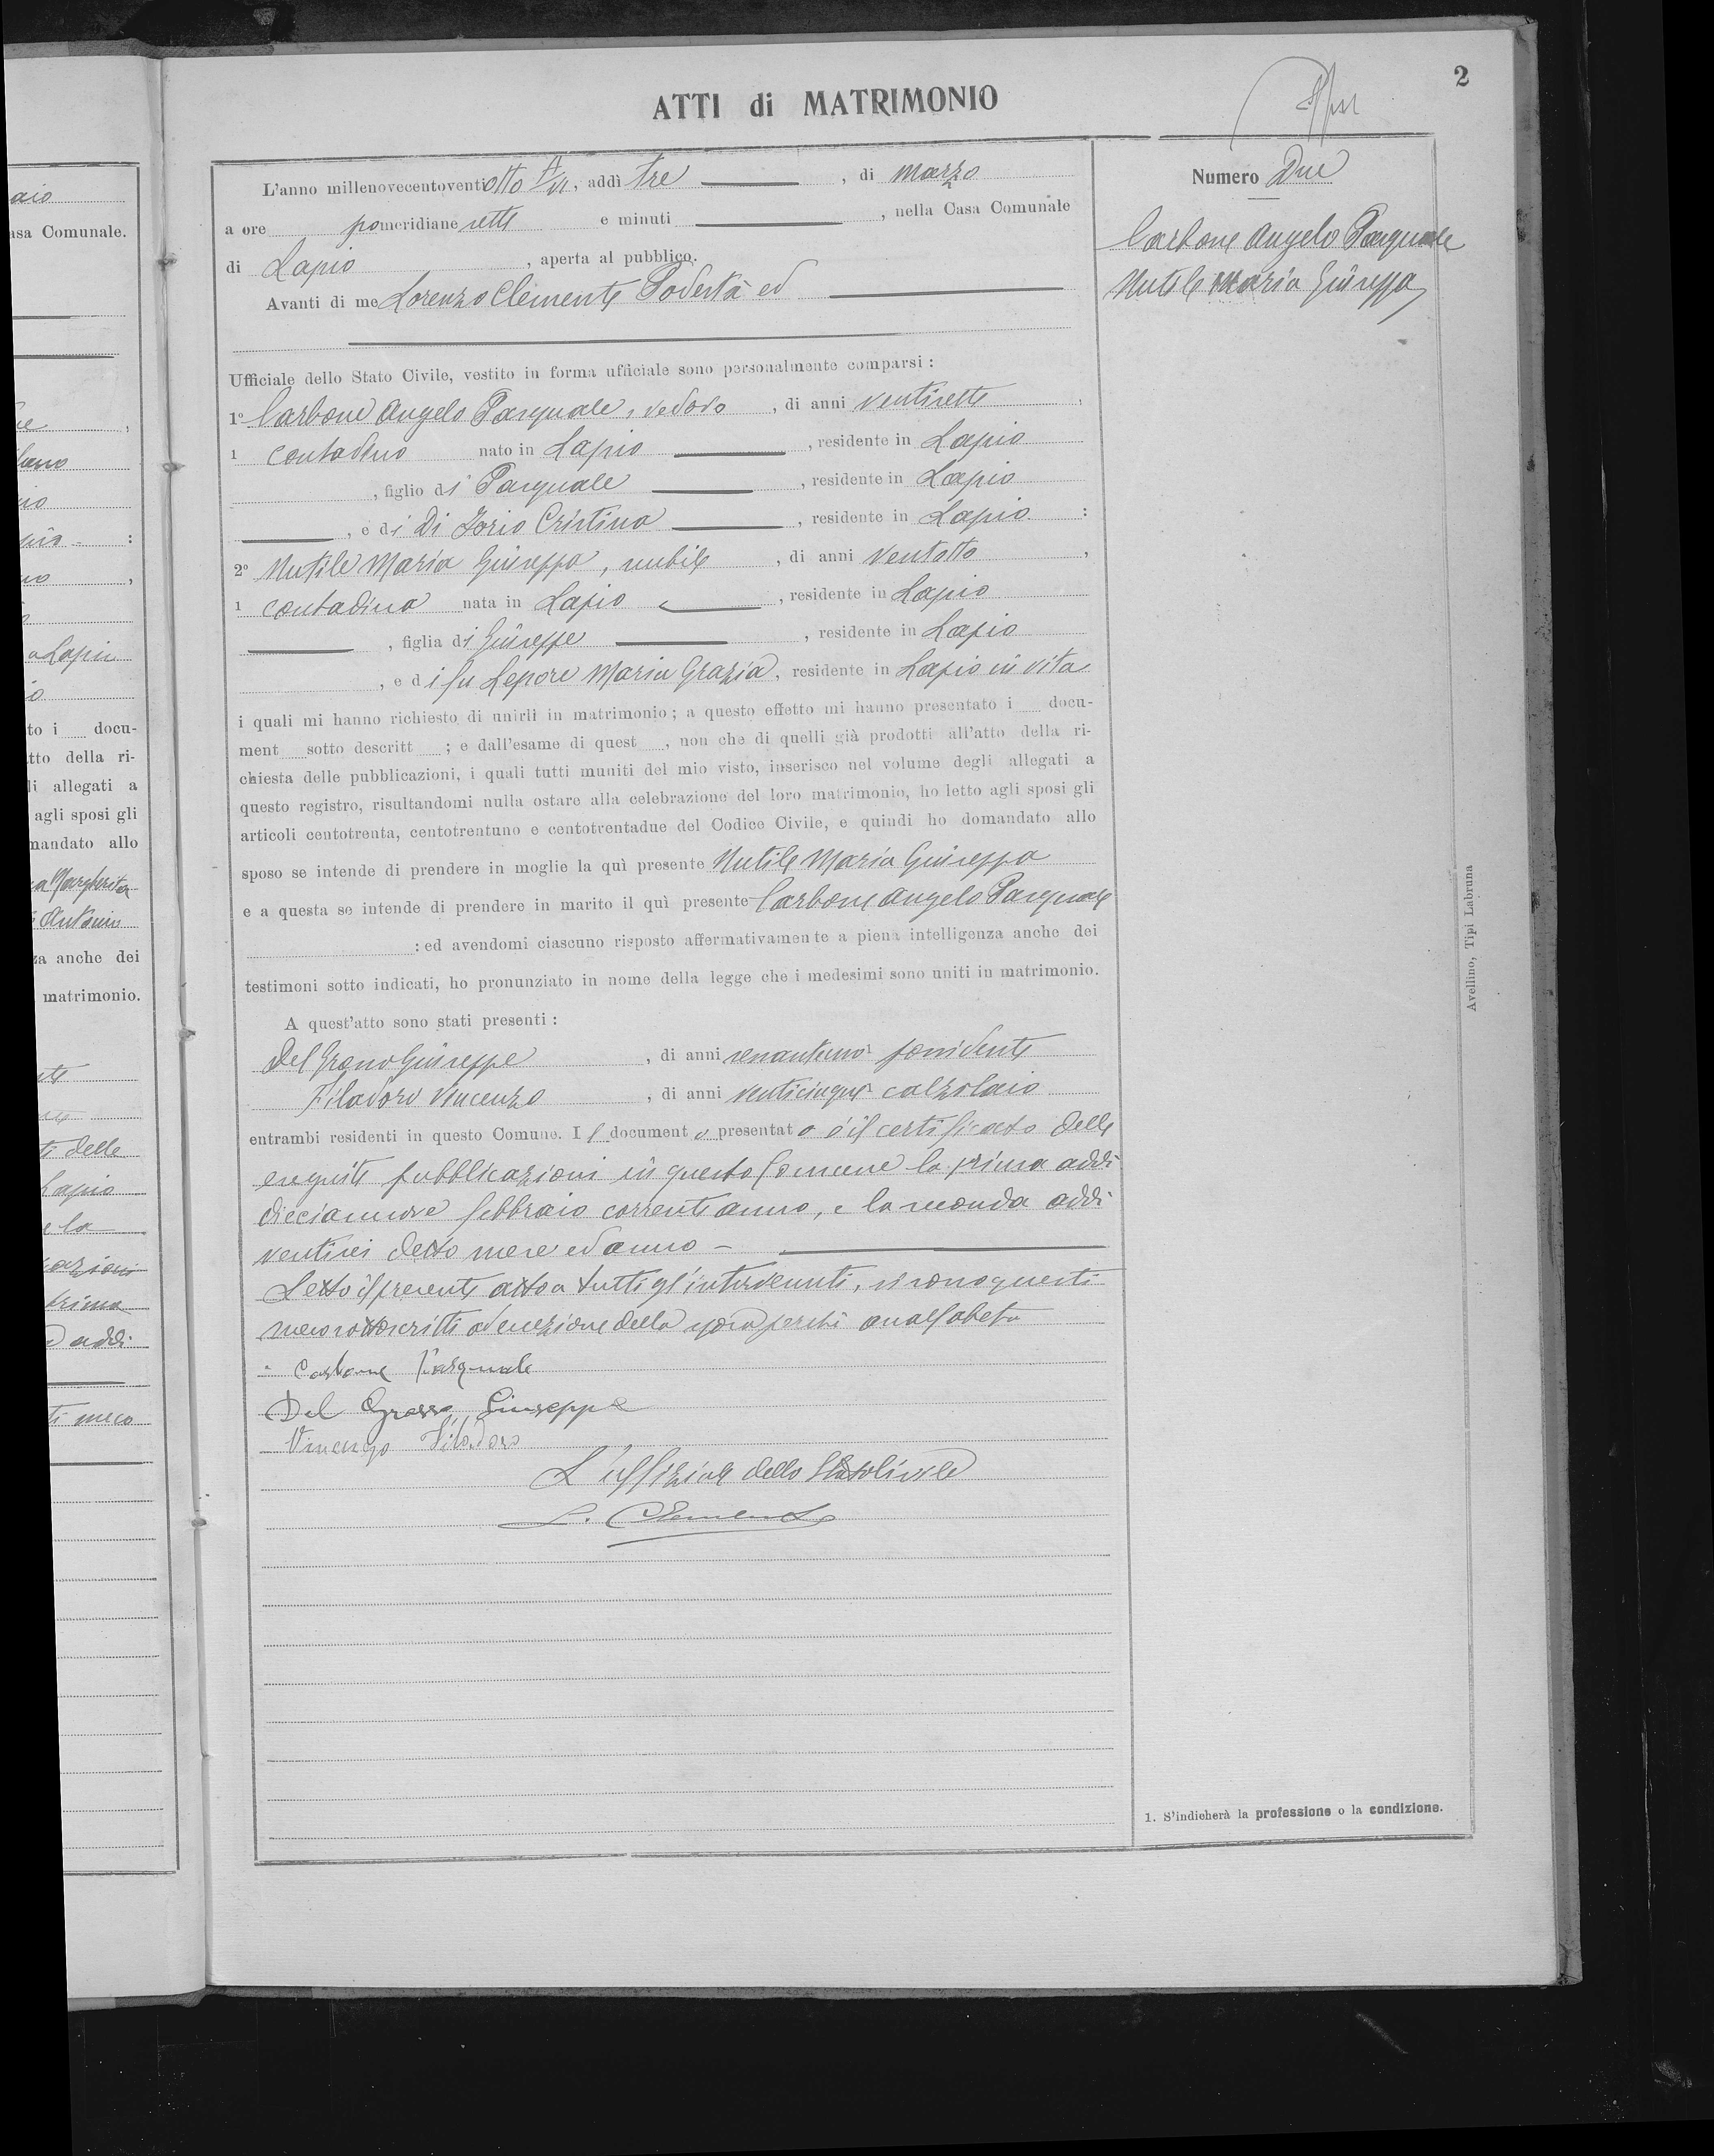 2
ATTI di MATRIMONIO
Numero Due
Carbone Angelo Pasquale
Nutile Maria Giuseppa
L'anno millenovecentoventiotto A VI, addì tre, di Marzo
a ore pomeridiane sette e minuti, nella Casa Comunale
di Lapio, aperta al pubblico.
Avanti di me Lorenzo Clemente Podestà ed
Ufficiale dello Stato Civile, vestito in forma ufficiale sono personalmente comparsi:
1º Carbone Angelo Pasquale, vedovo, di anni ventisette,
1 contadino nato in Lapio, residente in Lapio
, figlio di Pasquale, residente in Lapio
, e di Di Iorio Cristina, residente in Lapio:
2º Nutile Maria Giuseppa, nubile, di anni ventotto,
1 contadina nata in Lapio, residente in Lapio
, figlia di Giuseppe, residente in Lapio
, e di fu Lepore Maria Grazia, residente in Lapio in vita
i quali mi hanno richiesto di unirli in matrimonio; a questo effetto mi hanno presentato i docu-
ment sotto descritt ; e dall'esame di quest , non che di quelli già prodotti all'atto della ri-
chiesta delle pubblicazioni, i quali tutti muniti del mio visto, inserisco nel volume degli allegati a
questo registro, risultandomi nulla ostare alla celebrazione del loro matrimonio, ho letto agli sposi gli
articoli centotrenta, centotrentuno e centotrentadue del Codice Civile, e quindi ho domandato allo
sposo se intende di prendere in moglie la quì presente Nutile Maria Giuseppa
e a questa se intende di prendere in marito il quì presente Carbone Angelo Pasquale
: ed avendomi ciascuno risposto affermativamente a piena intelligenza anche dei
testimoni sotto indicati, ho pronunziato in nome della legge che i medesimi sono uniti in matrimonio.
A quest'atto sono stati presenti:
Del Grosso Giuseppe, di anni possidente
Filadoro Vincenzo, di anni venticinque calzolaio
entrambi residenti in questo Comune. Il documento presentato è il certificato delle
eseguite pubblicazioni in questo Comune la prima addì
diciannove febbraio corrente anno, e la seconda addì
ventisei detto mese ed anno –
Letto il presente atto a tutti gl'intervenuti, si sono questi
meco sottoscritti ad eccezione della sposa perchè analfabeta
Carbone Pasquale
Del Grosso Giuseppe
Vincenzo Filadoro
L'uffiziale dello Stato Civile
L. Clemente
Avellino, Tipi Labruna
1. S'indicherà la professione o la condizione.